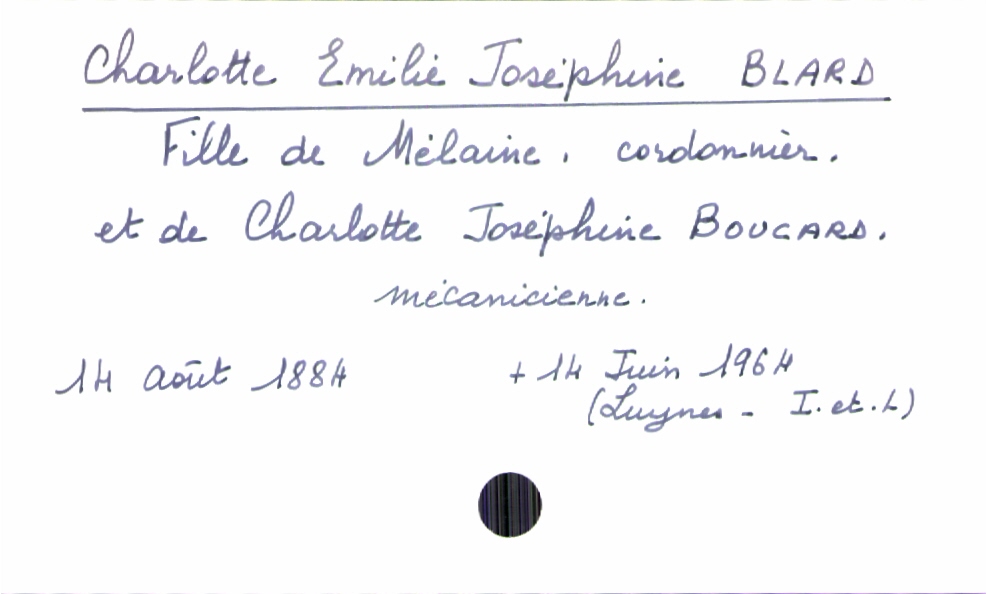 Charlotte Emilie Joséphine BLARD
Fille de Mélaine, cordonnier.
et de Charlotte Joséphine BOUGARD.
mécanicienne.
14 août 1884 + 14 Juin 1964
(Luynes - I.et.L)